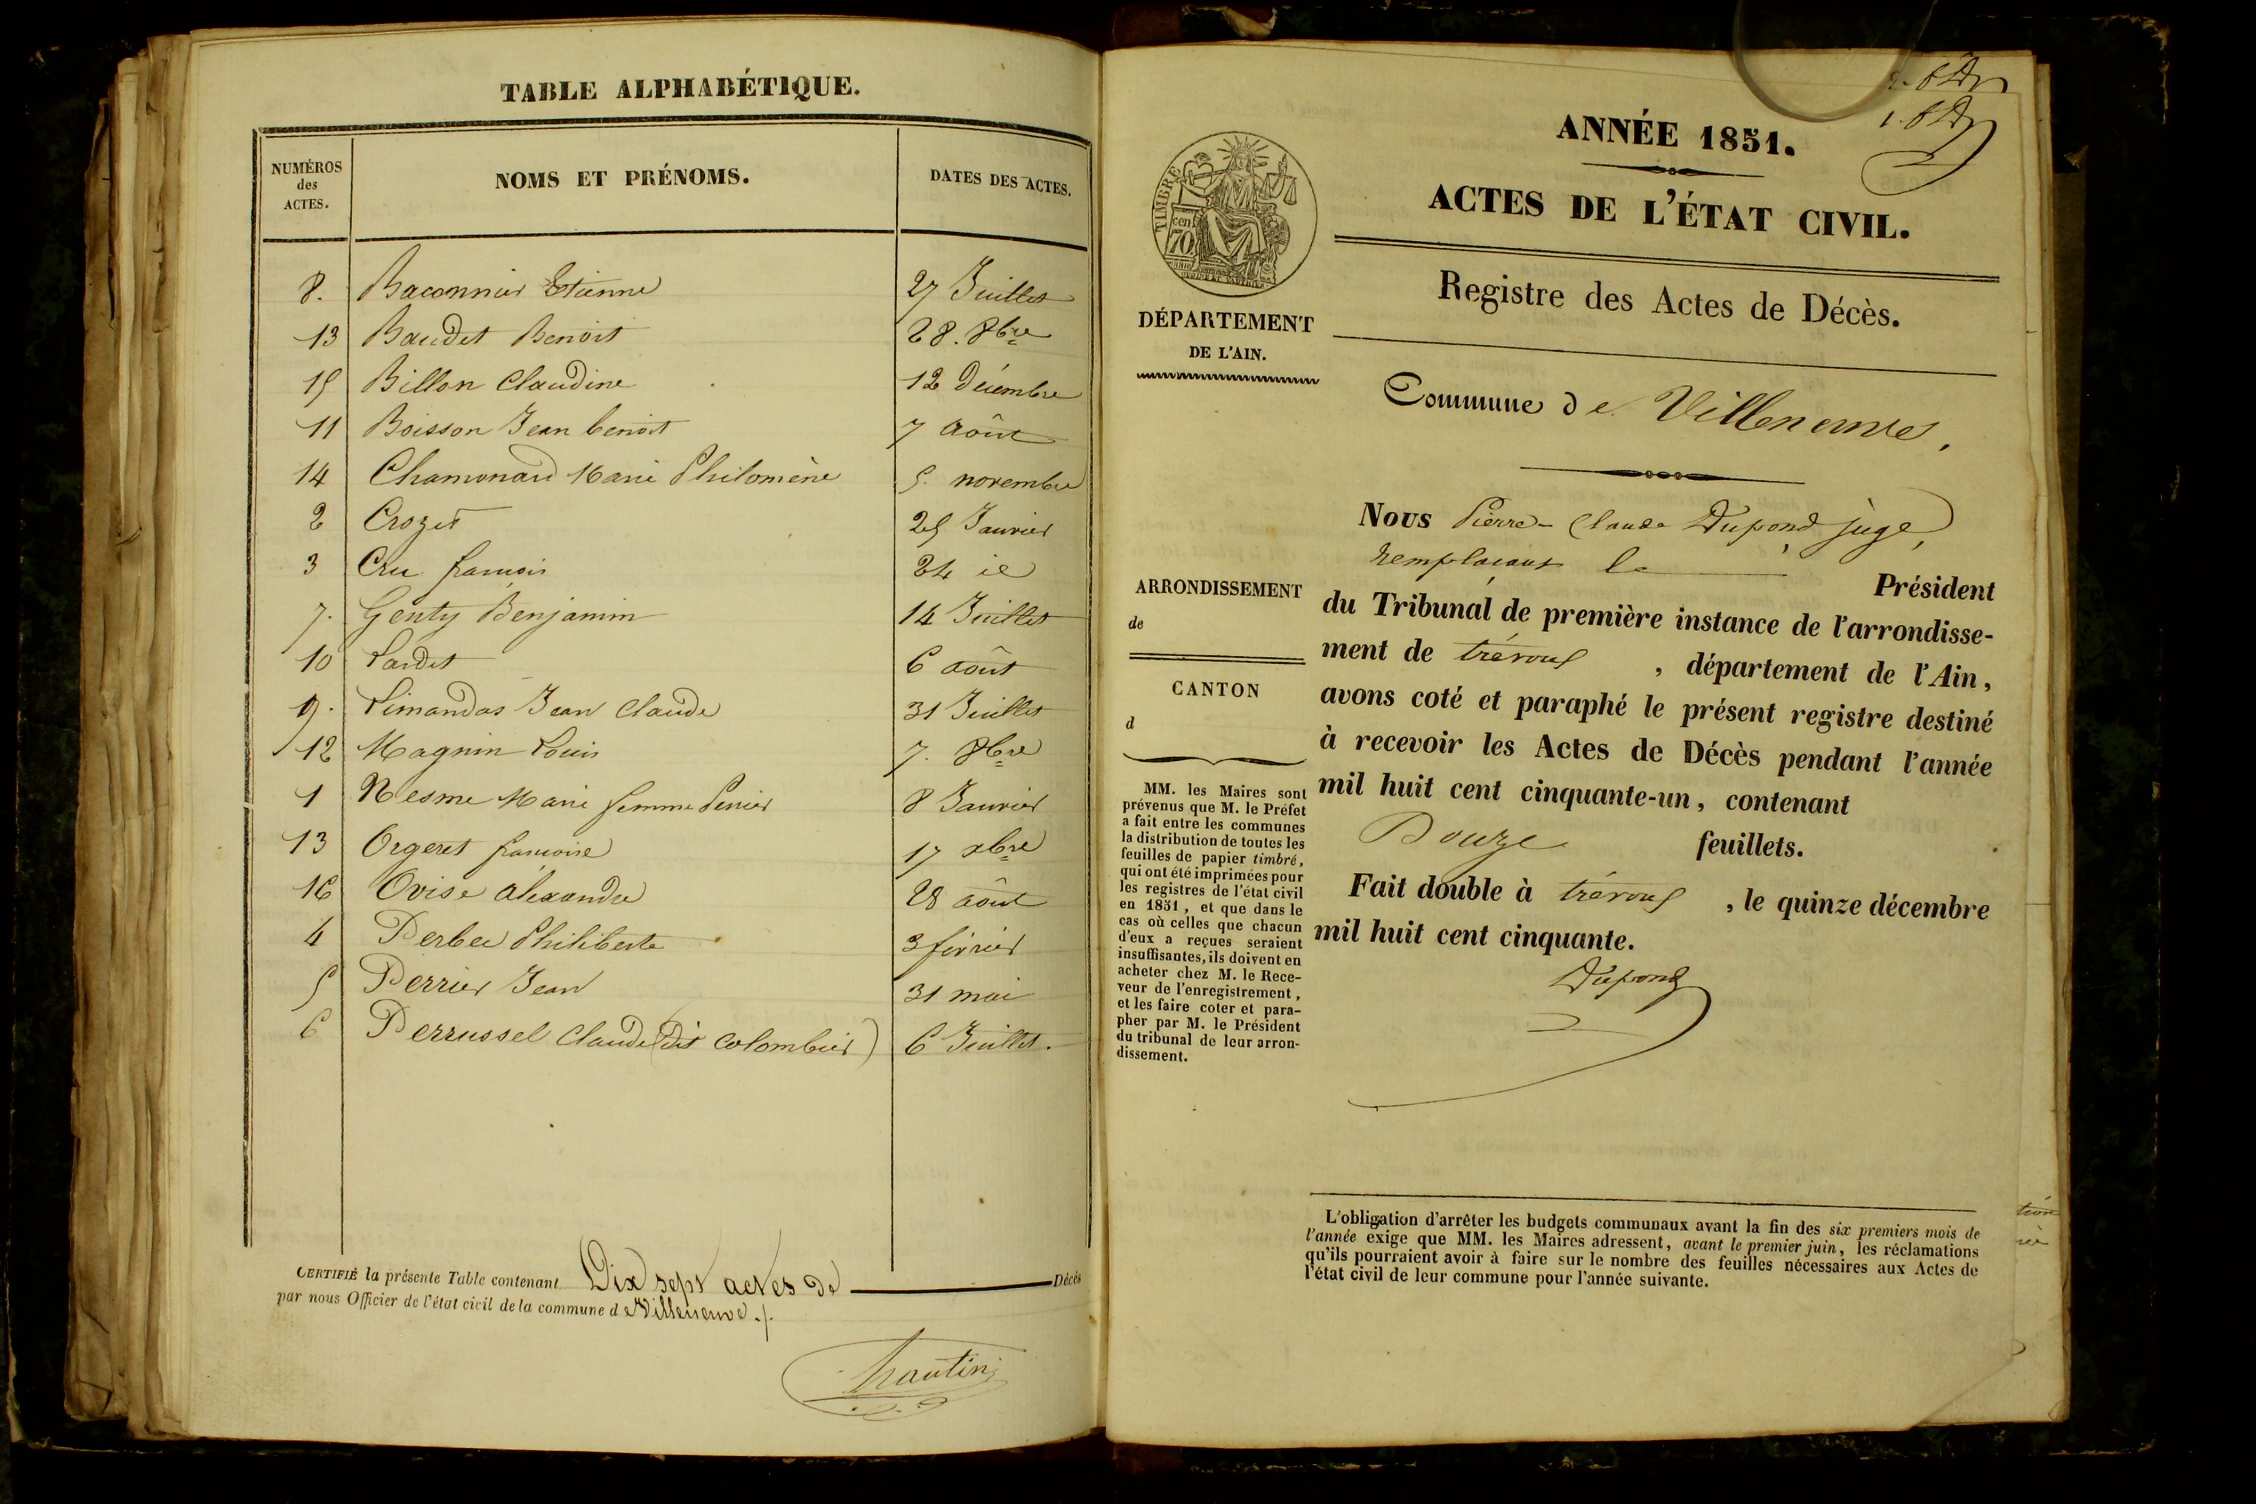 TABLE ALPHABÉTIQUE.
NUMÉROS des ACTES. NOMS ET PRÉNOMS. DATES DES ACTES.
8. Baconnier Etienne 27 Juillet
13 Baudet Benoit 28. 8bre
15 Billon Claudine 12 Décembre
11 Boisson Jean benoit 7 Août
14 Chamonard Marie Philomène 5. novembre
2 Crozet 25 Janvier
3 Cru françois 24 id
7. Genty Benjamin 14 Juillet
10 Lardet 6 août
9. Limandas Jean Claude 31 Juillet
12 Magnin Louis 7. 8bre
1 Nesme Marie femme Perrier 8 Janvier
13 Orgeret françoise 17 xbre
16 Ovise alexandre 28 août
4 Perbet Philiberte 3 février
5 Perrier Jean 31 mai
6 Perrussel Claude (dit Colombier) 6 Juillet.
CERTIFIÉ la présente Table contenant Dix sept actes de Décès
par nous Officier de l'état civil de la commune de Villeneuve ./.
ANNÉE 1851.
ACTES DE L'ÉTAT CIVIL.
Registre des Actes de Décès.
TIMBRE
70 cen
DÉPARTEMENT
DE L'AIN.
Commune de Villeneuve,
Nous Pierre-Claude Dupond juge,
remplaçant le Président
du Tribunal de première instance de l'arrondisse-
ment de trévoux , département de l'Ain,
avons coté et paraphé le présent registre destiné
à recevoir les Actes de Décès pendant l'année
mil huit cent cinquante-un, contenant
Douze feuillets.
Fait double à trévoux , le quinze décembre
mil huit cent cinquante.
Dupond
ARRONDISSEMENT
de
CANTON
d
MM. les Maires sont
prévenus que M. le Préfet
a fait entre les communes
la distribution de toutes les
feuilles de papier timbré,
qui ont été imprimées pour
les registres de l'état civil
en 1851, et que dans le
cas où celles que chacun
d'eux a reçues seraient
insuffisantes, ils doivent en
acheter chez M. le Rece-
veur de l'enregistrement,
et les faire coter et para-
pher par M. le Président
du tribunal de leur arron-
dissement.
L'obligation d'arrêter les budgets communaux avant la fin des six premiers mois de
l'année exige que MM. les Maires adressent, avant le premier juin, les réclamations
qu'ils pourraient avoir à faire sur le nombre des feuilles nécessaires aux Actes de
l'état civil de leur commune pour l'année suivante.